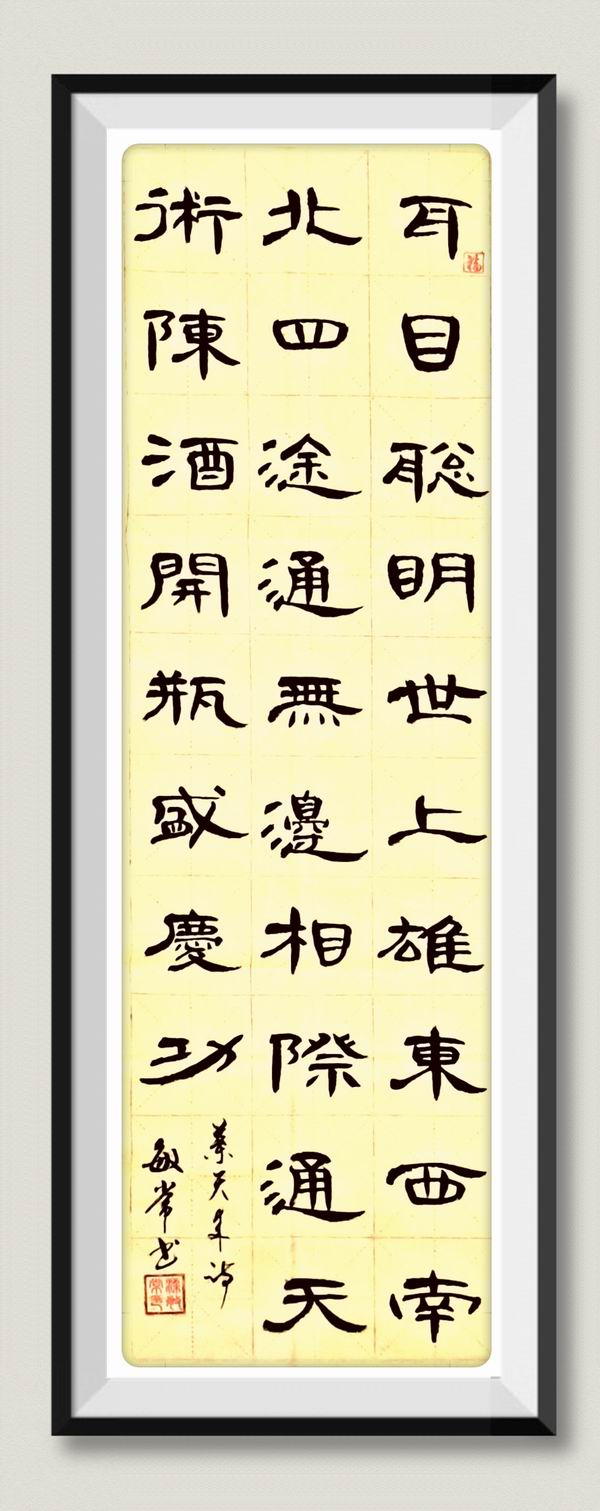 耳目聪眀世上雄東西南
北四途通無邊相際通天
術陳酒開瓶盛慶功
天年诗
敏常书